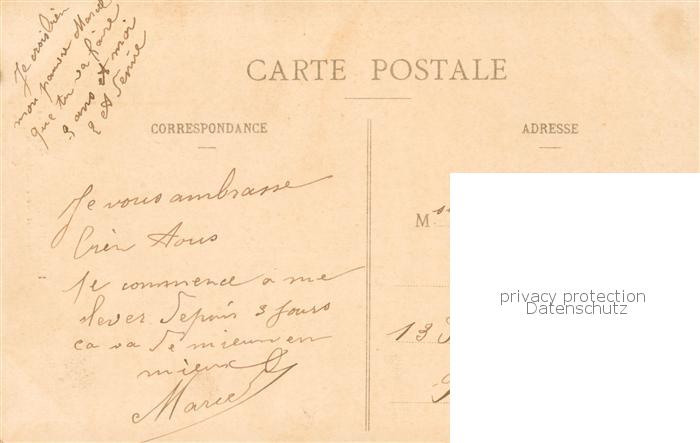 Je crois bien
mon pauvre Marcel
que tu va faire
3 ans et moi
2 et Demie
CARTE POSTALE
CORRESPONDANCE
ADRESSE
Je vous ambrasse
bien Tous
Je commence a me
lever Depuis 3 Jours
ca va De mieux en
mieux
Marcel
M
privacy protection
Datenschutz
13